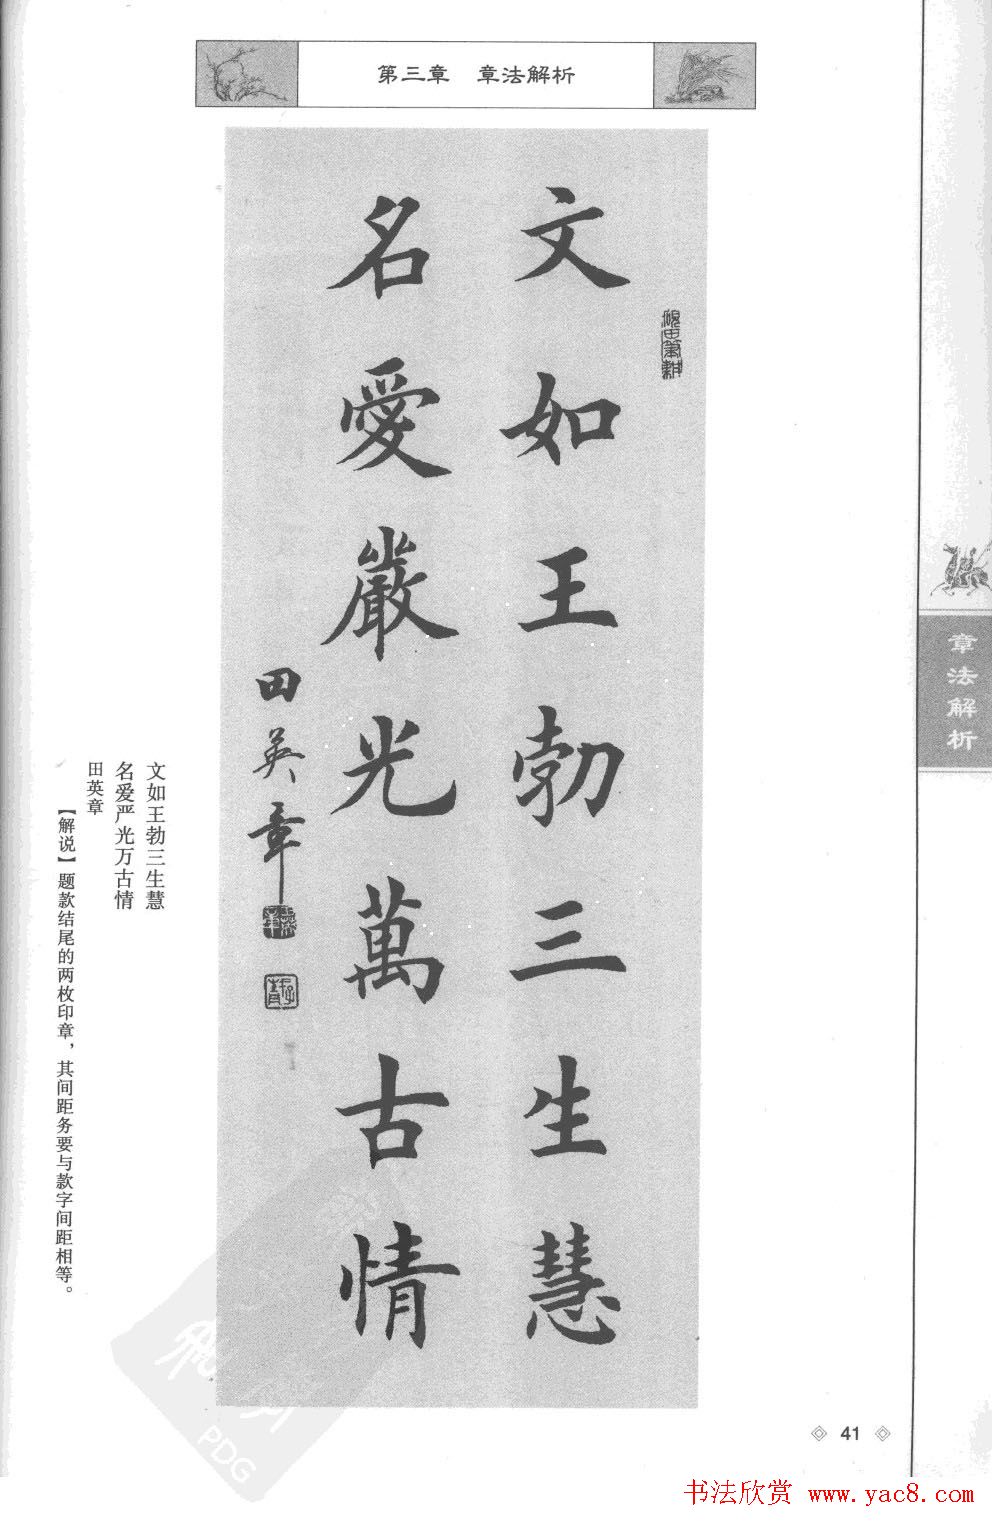 第三章　章法解析
文如王勃三生慧
名愛嚴光萬古情
田英章
文如王勃三生慧
名爱严光万古情
田英章
【解说】题款结尾的两枚印章，其间距务要与款字间距相等。
章法解析
41
PDG
书法欣赏 www.yac8.com